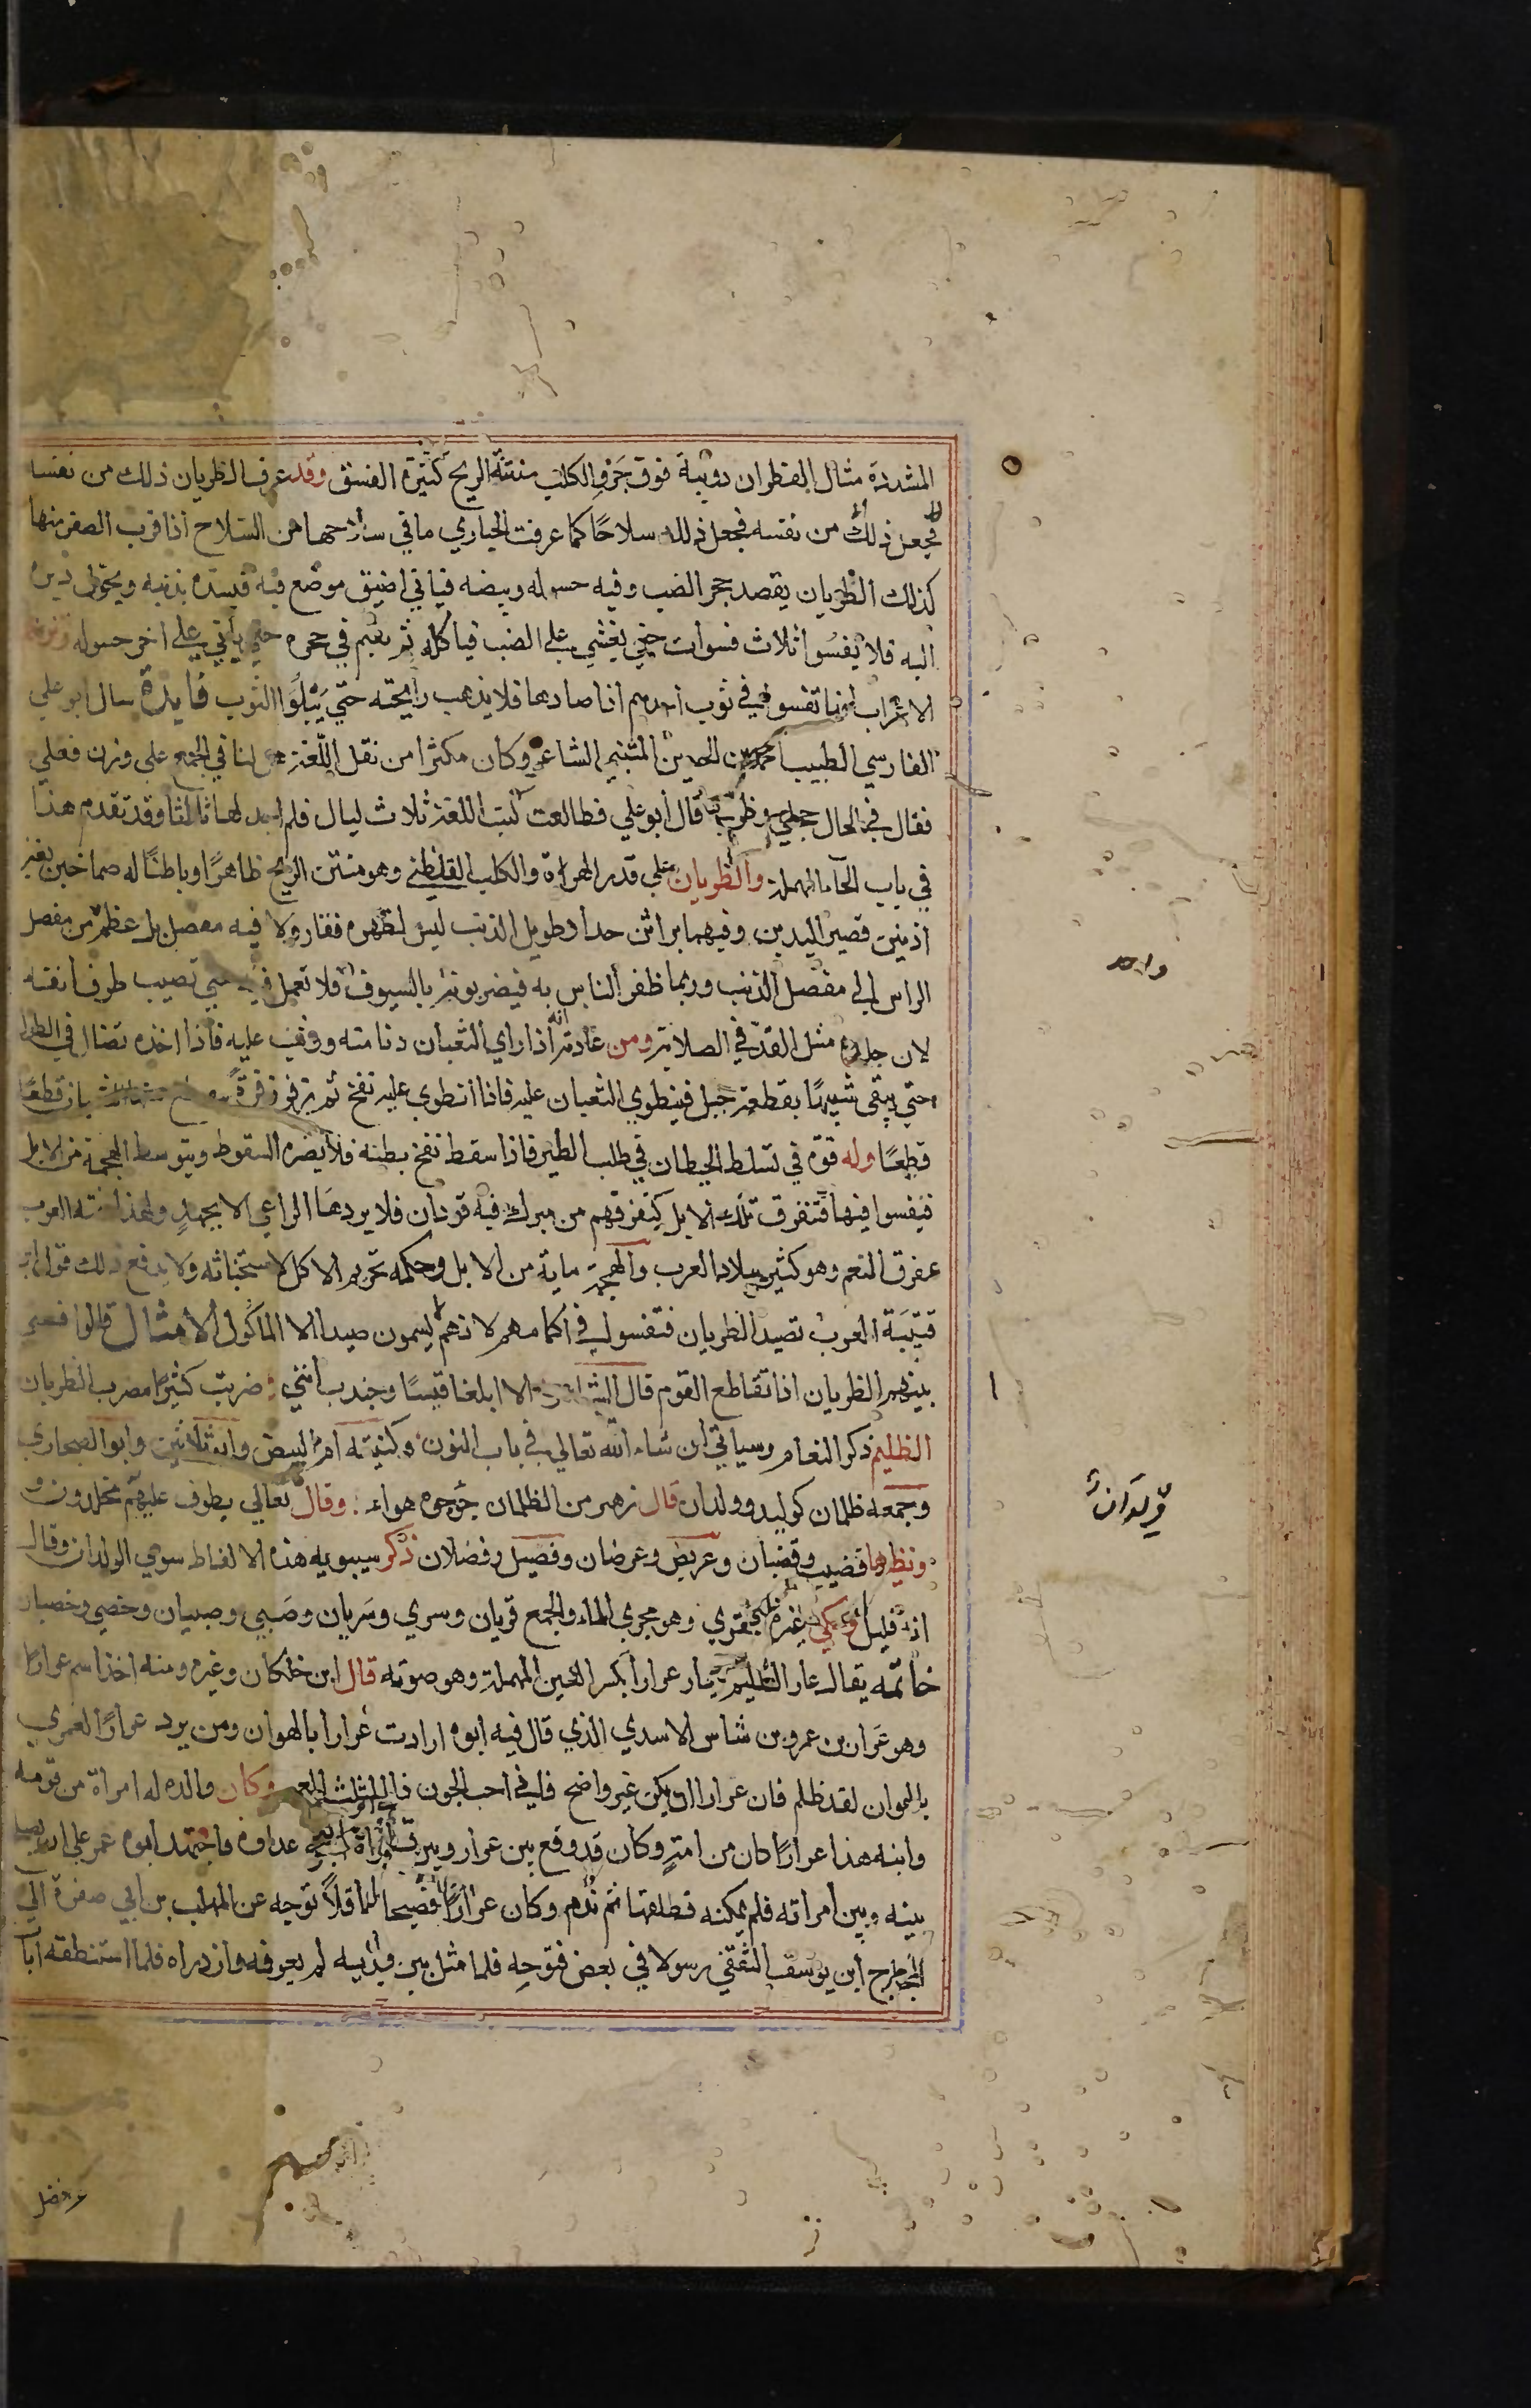 المشددة مثال القطران دويبة فوق جرو الكلب منتنة الريح كثيرة الفسق وقد عرف الظربان ذلك من نفسه
فجعل ذلك من نفسه فجعل ذلك سلاحًا كما عرفت الحباري ما في سلاحها من السلاح اذا قرب الصقر منها
كذلك الظربان يقصد جحر الضب وفيه حسوله وبيضه فياتي اضيق موضع فيه فيسده بذنبه ويحول دبره
اليه فلا يفسوا ثلاث فسوات حتي يغشي علي الضب فياكله ثم يقيم في جحره حتي ياتي علي اخر حسوله
الاعراب انها تفسوا في ثوب احدهم اذا صادها فلا يذهب رايحته حتي يبلوا الثوب فايدة سال ابو علي
الفارسي الطيب احمد بن الحسين المتنبي الشاعر وكان مكثرا من نقل اللغة لنا في الجمع علي وزن فعلي
فقال في الحال حجلي وظربي قال ابو علي فطالعت كتب اللغة ثلاث ليال فلم اجد لها ثالثا وقد تقدم هذا
في باب الحآ المهملة والظربان علي قدر الهراة والكلب القلطي وهو منتن الريح ظاهرًا وباطنًا له صماخين بغير
اذنين قصير اليدين وفيهما براثن حداد طويل الذنب ليس لظهره فقار ولا فيه مفصل بل عظم من مفصل
الراس الي مفصل الذنب وربما ظفر الناس به فيضربونه بالسيوف فلا تعمل فيه حتي تصيب طرف انفه
لان جلده مثل القد في الصلابة ومن عادته انه اذا راي الثعبان دنا منه ووثب عليه فاذا اخذه تضاال في الطول
حتي يبقي شبيهًا بقطعة حبل فينطوي الثعبان عليه فاذا انطوي عليه نفخ ثم زفر زفرة قطعًا
قطعًا وله قوة في تسلط الحيطان في طلب الطير فاذا سقط نفخ بطنه فلا يضره السقوط ويتوسط الهجمة من الابل
فيفسوا فيها فتتفرق تلك الابل كتفرقهم من مبرك فيه قردان فلا يردها الراعي الا بجهد ولهذا العرب
مفرق النعم وهو كثير ببلاد العرب والهجمة ماية من الابل وحكمه تحريم الاكل لاستخباثه ولا يدفع ذلك قول ابن
قتيبة العرب تصيد الظربان فتفسو في اكمامهم لانهم لا يسمون صيدا الا الماكول الامثال قالوا فسي
بينهم الظربان اذا تقاطع القوم قال الشاعر الا ابلغا قيسًا وجندب انني ضربت كثيرًا مضرب الظربان
الظليم ذكر النعام وسياتي ان شاء الله تعالي في باب النون وكنيته ام البيض وابو ثلاثين وابو الصحاري
وجمعه ظلمان كوليد وولدان قال زهير من الظلمان جؤجوه هواء وقال تعالي يطوف عليهم مخلدون
ونظيرها قضيب وقضبان وعريض وعرضان وفصيل وفصلان ذكر سيبويه هذه الالفاظ سوي الولدان وقال
انه قليل وحكي غيره قري وهو مجري الماء والجمع قريان وسري وسريان وصبي وصبيان وخصي وخصيان
خاتمه يقال عار الظليم يعار عرارا بكسر العين المهملة وهو صوته قال ابن خلكان وغيره ومنه اخذ اسم عرارًا
وهو عرار بن عمرو بن شاس الاسدي الذي قال فيه ابوه ارادت عرارا بالهوان ومن يرد عرارًا لعمري
بالهوان لقد ظلم فان عرارا ان يكن غير واضح فاني احب الجون ذا المنكب العمم وكان والده له امراة من قومه
وابنه هذا عرارًا كان من امته وكان قد وقع بين عرار وبين امراة ابيه عداوة فاجتهد ابوه عمرو علي ان يصلح
بينه وبين امراته فلم يمكنه فطلقها ثم ندم وكان عرارًا فصيحا عاقلاً توجه عن المهلب بن ابي صفرة الي
الحجاج ابن يوسف الثقفي رسولا في بعض فتوحه فلما مثل بين يديه لم يعرفه وازدراه فلما استنطقه ابآ
واحد
ولدان